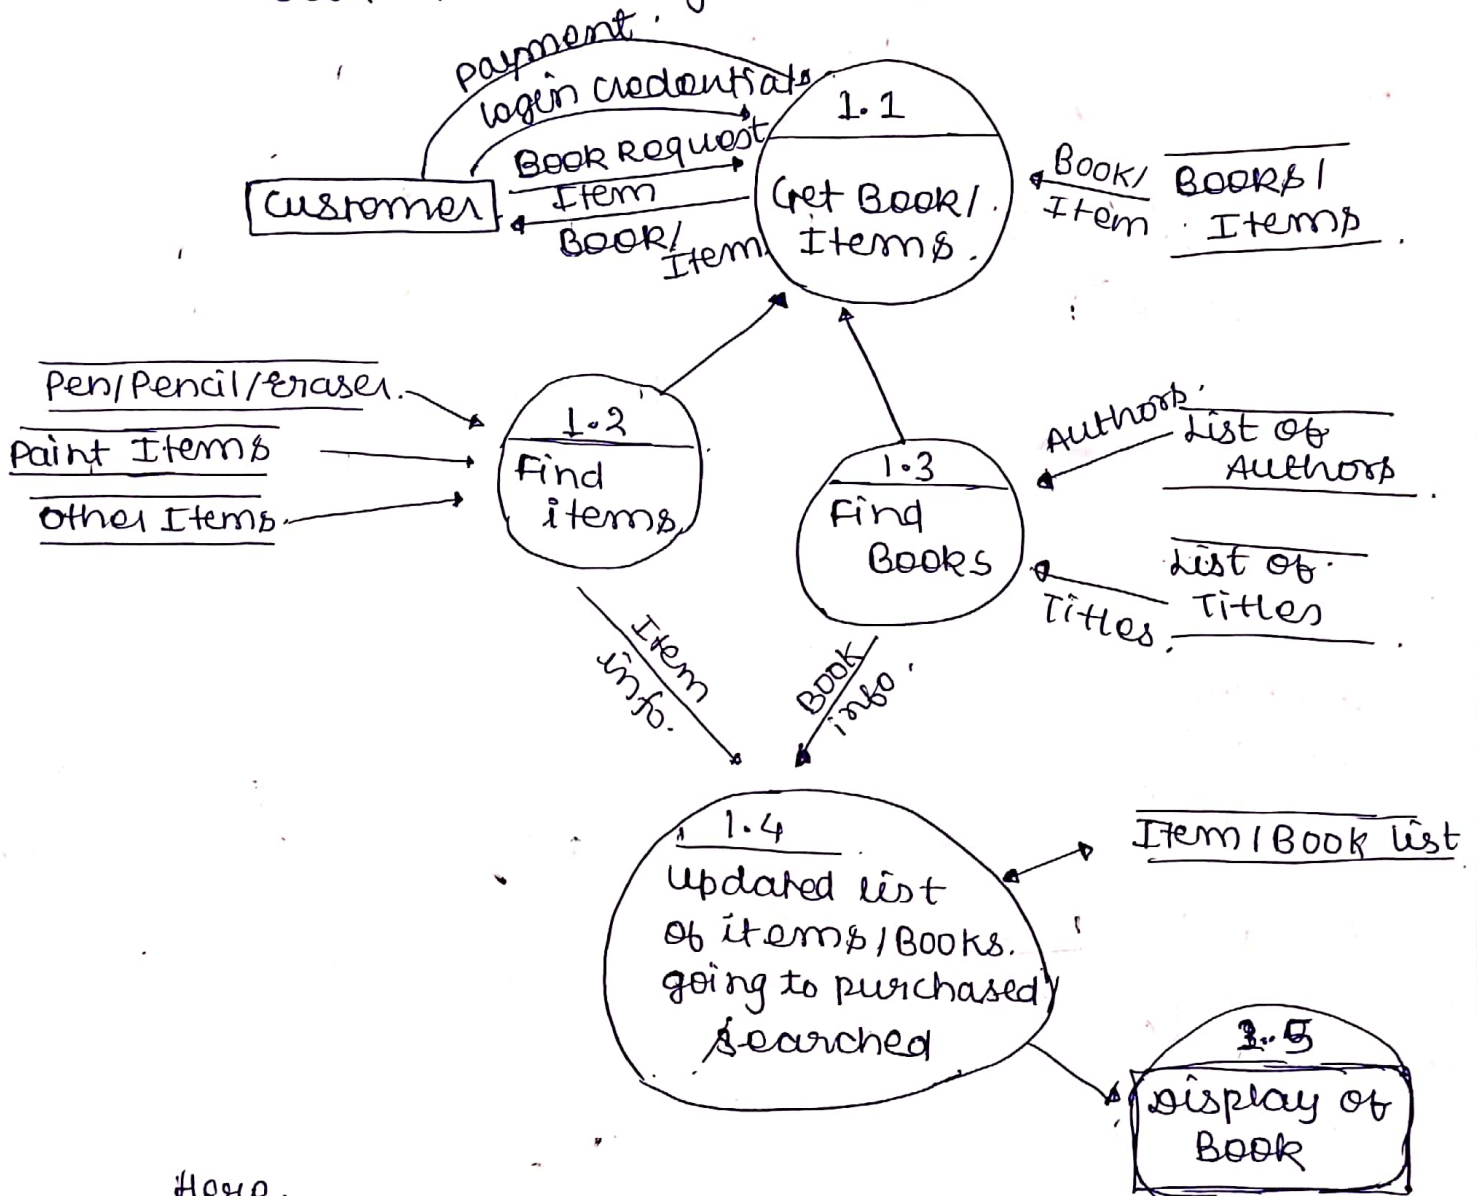 payment.
login credentials
Book Request
Item
Book/
Item
Customer
1.1
Get Book/
Items.
Book/
Item
Books/
Items
Pen/Pencil/Eraser.
Paint Items
Other Items.
1.2
Find
items
1.3
Find
Books
Authors.
List of
Authors
List of
Titles
Titles.
Item
info.
Book
info.
1.4
Updated list
of items/Books.
going to purchased/
searched
Item/Book list
1.5
Display of
Book
Here.